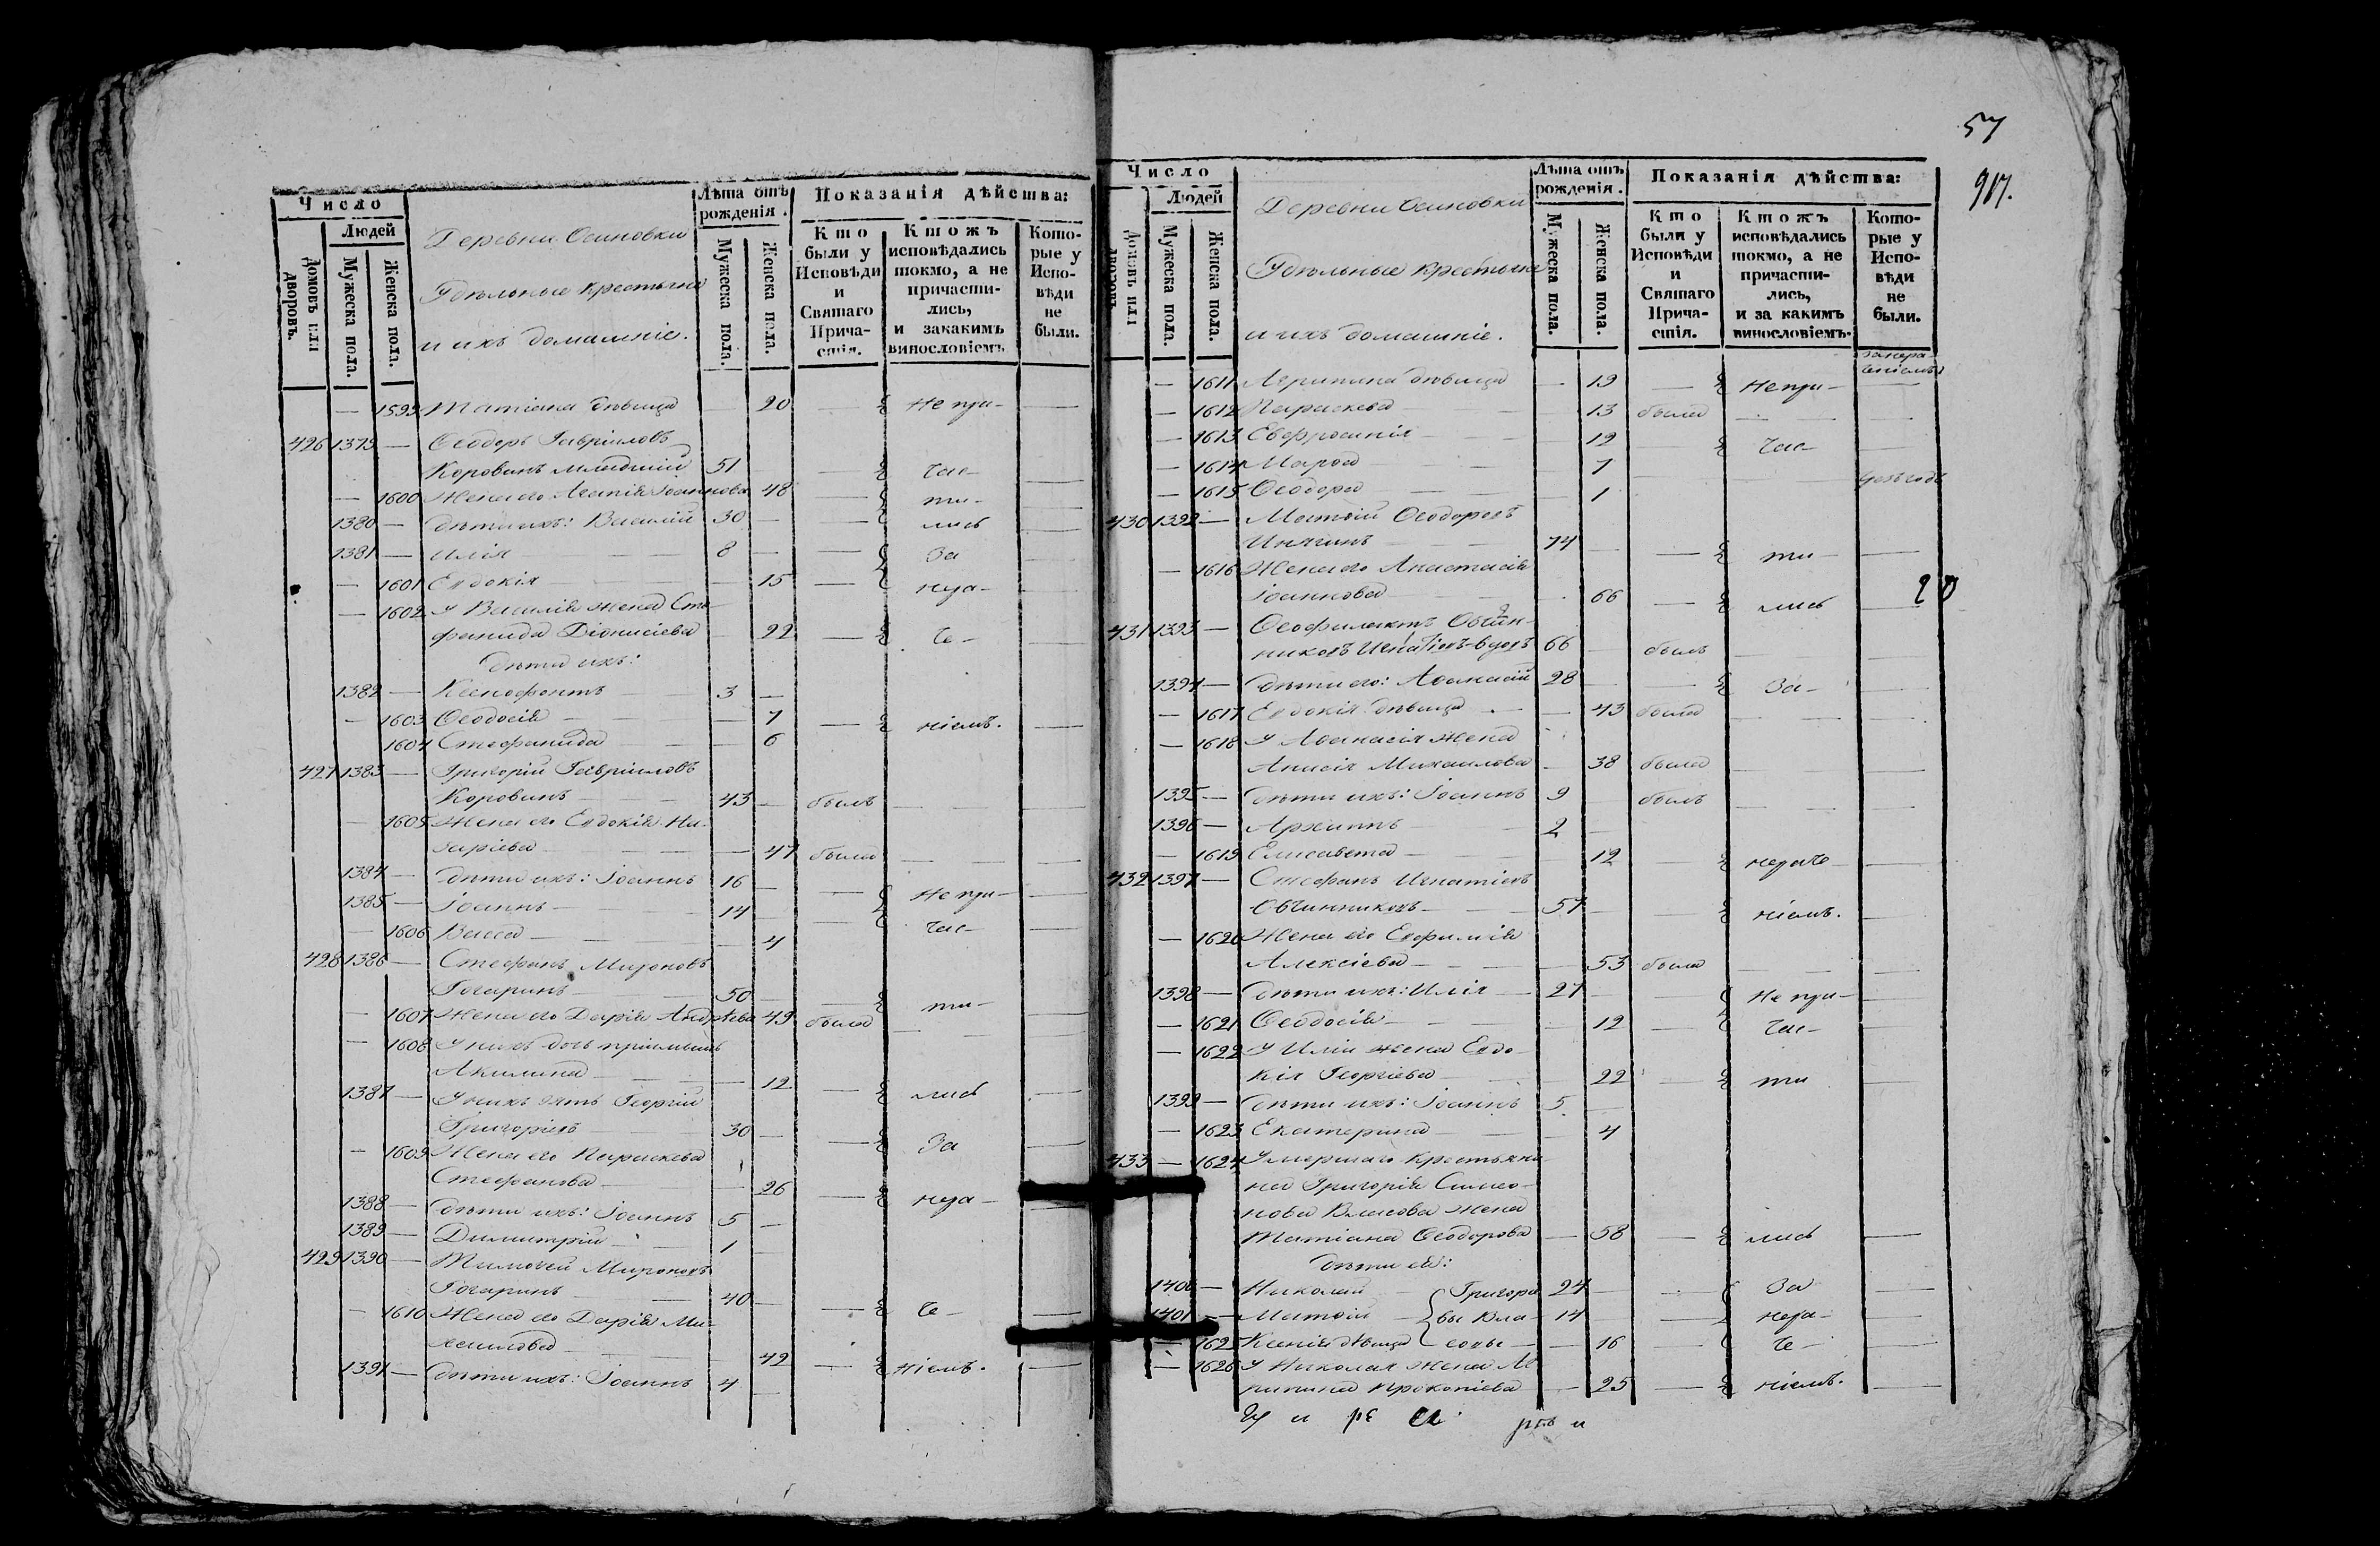 Число
Людей
Домовъ или дворовъ.
Мужеска пола.
Женска пола.
Деревни Осиновки
Удѣльные крестьяне
и ихъ домашніе.
Лѣта отъ рожденія.
Мужеска пола.
Женска пола.
Показанія дѣйства:
Кто были у Исповѣди и Святаго Причастія.
Ктожъ исповѣдались токмо, а не причастились, и закакимъ винословіемъ
Которые у Исповѣди не были.
— 1599 Татіана дѣвица — 20 — Не при-
426 1379 — Ѳеодоръ Гавріиловъ
Коровинъ младшій 51 — час-
— 1600 Жена его Агапія Іоаннова 48 — ти-
1380 — дѣти ихъ: Василій 30 — лись
1381 — Илія 8 — За
— 1601 Евдокія — 15 — нера-
— 1602 У Василія жена Сте-
фанида Діонисіева — 22 — че-
дѣти ихъ:
1382 — Ксенофонтъ 3 —
— 1603 Ѳеодосія — 7 — ніемъ.
1604 Стефанида — 6
427 1383 — Григорій Гавріиловъ
Коровинъ 43 — былъ
— 1605 Жена его Евдокія На-
заріева — 47 была
1384 — дѣти ихъ: Іоаннъ 16 — Не при-
1385 — Іоаннъ 14 — час-
— 1606 Васса — 4
428 1386 — Стефанъ Мироновъ
Гогаринъ 50 — ти-
— 1607 Жена его Дарія Андрѣева 49 была
— 1608 У нихъ дочь пріимышъ
Акилина — 12 — лись
1387 — У нихъ зять Георгій
Григоріевъ 30 — За
— 1609 Жена его Параскева
Стефанова — 26 — нера-
1388 — дѣти ихъ: Іоаннъ 5 —
1389 — Димитрій 1
429 1390 — Тимоѳей Мироновъ
Гогаринъ 40 — че-
— 1610 Жена его Дарія Ми-
хаилова — 42 — ніемъ.
1391 — дѣти ихъ: Іоаннъ 4 —
57
917.
Число
Людей
Домовъ или дворовъ.
Мужеска пола.
Женска пола.
Деревни Осиновки
Удѣльные крестьяне
и ихъ домашніе.
Лѣта отъ рожденія.
Мужеска пола.
Женска пола.
Показанія дѣйства:
Кто были у Исповѣди и Святаго Причастія.
Ктожъ исповѣдались токмо, а не причастились, и за какимъ винословіемъ.
Которые у Исповѣди не были.
— 1611 Агрипина дѣвица — 19 — Не при-
— 1612 Параскева — 13 была
— 1613 Евфросинія — 12 — час-
— 1614 Марѳа — 7
— 1615 Ѳеодора — 1
430 1392 — Матѳій Ѳеодоровъ
74 — ти-
— 1616 Жена его Анастасія
Іоаннова — 66 — лись
20
431 1393 — Ѳеофилактъ Овчин-
никовъ Игнатіевъ вдовъ 66 былъ
1394 — дѣти его: Аѳанасій 28 — За-
— 1617 Евдокія дѣвица — 43 была
— 1618 У Аѳанасія жена
Анисія Михаилова — 38 была
1395 — дѣти ихъ: Іоаннъ 9 былъ
1396 — Архиппъ 2
— 1619 Елисавета 12 — нераче-
432 1397 — Стефанъ Игнатіевъ
Овчинниковъ 57 — ніемъ.
— 1620 Жена его Евфимія
Алексіева — 53 была
1398 — дѣти ихъ: Илія 27 — Не при-
— 1621 Ѳеодосія — 12 — час-
— 1622 У Иліи жена Евдо-
кія Георгіева — 22 — ти
1399 — дѣти ихъ: Іоаннъ 5 —
— 1623 Екатерина — 4
433 — 1624 Умершаго крестьяни-
на Григорія Симео-
нова Власова жена
Татіана Ѳеодорова — 58 — лись
дѣти ея:
1400 — Николай Григорь 24 — За
1401 — Матѳій вы Вла- 14 — нера-
— 1625 Ксенія дѣвица совы — 16 — че-
— 1626 У Николая жена Ма
Прокопіева — 25 — ніемъ.